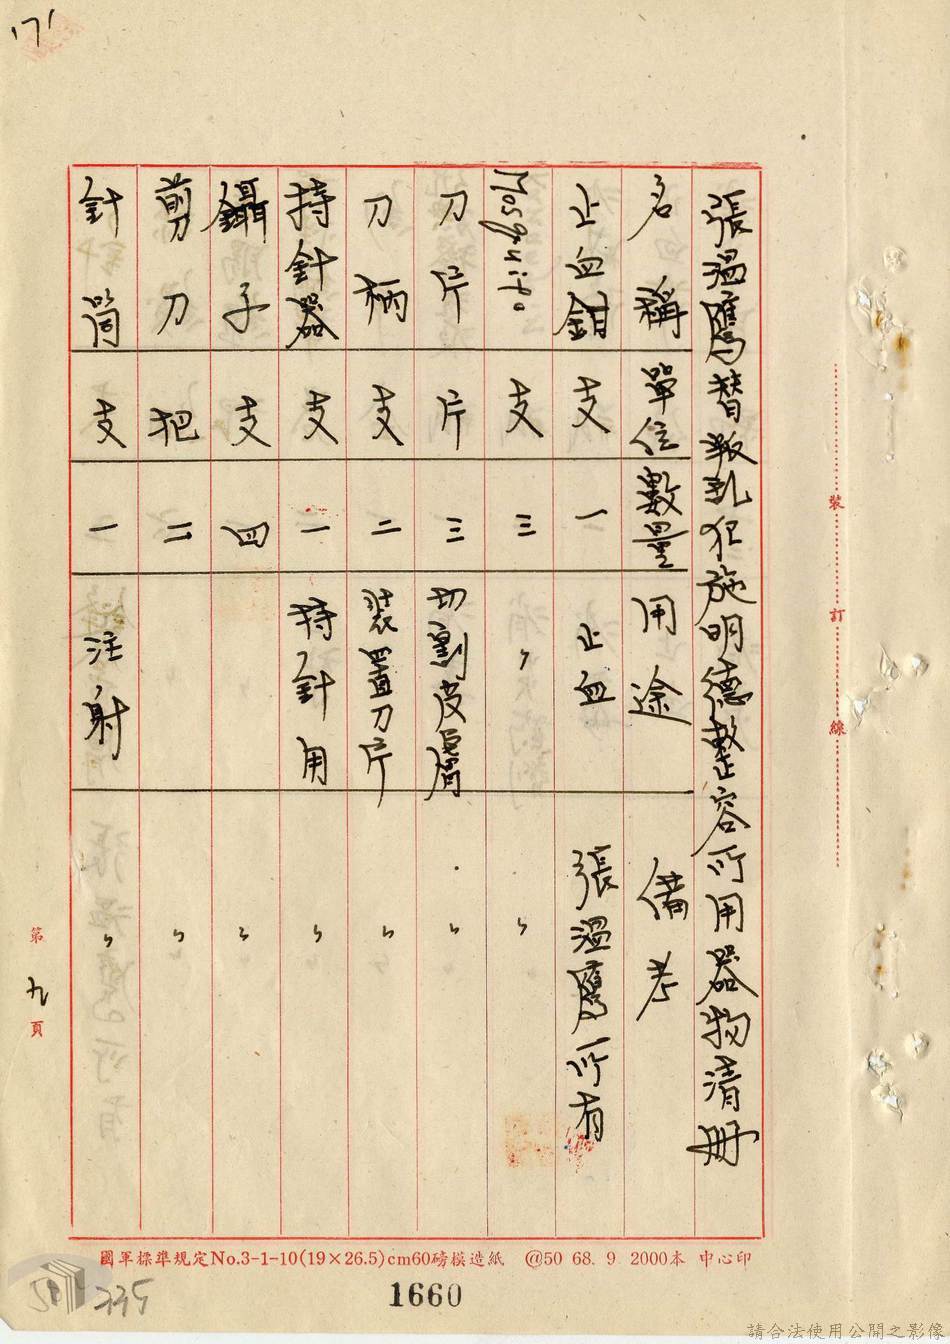 171
張溫鷹替叛亂犯施明德整容所用器物清冊
名稱 單位 數量 用途 備考
止血鉗 支 一 止血 張溫鷹所有
Mosquito 支 三 〃 〃
刀片 片 三 切割皮膚 〃
刀柄 支 二 裝置刀片 〃
持針器 支 一 持針用 〃
鑷子 支 四 〃
剪刀 把 二 〃
針筒 支 一 注射 〃
裝訂線
第九頁
國軍標準規定No.3-1-10(19×26.5)cm60磅模造紙 @50 68. 9 2000本 中心印
1660
335
請合法使用公開之影像